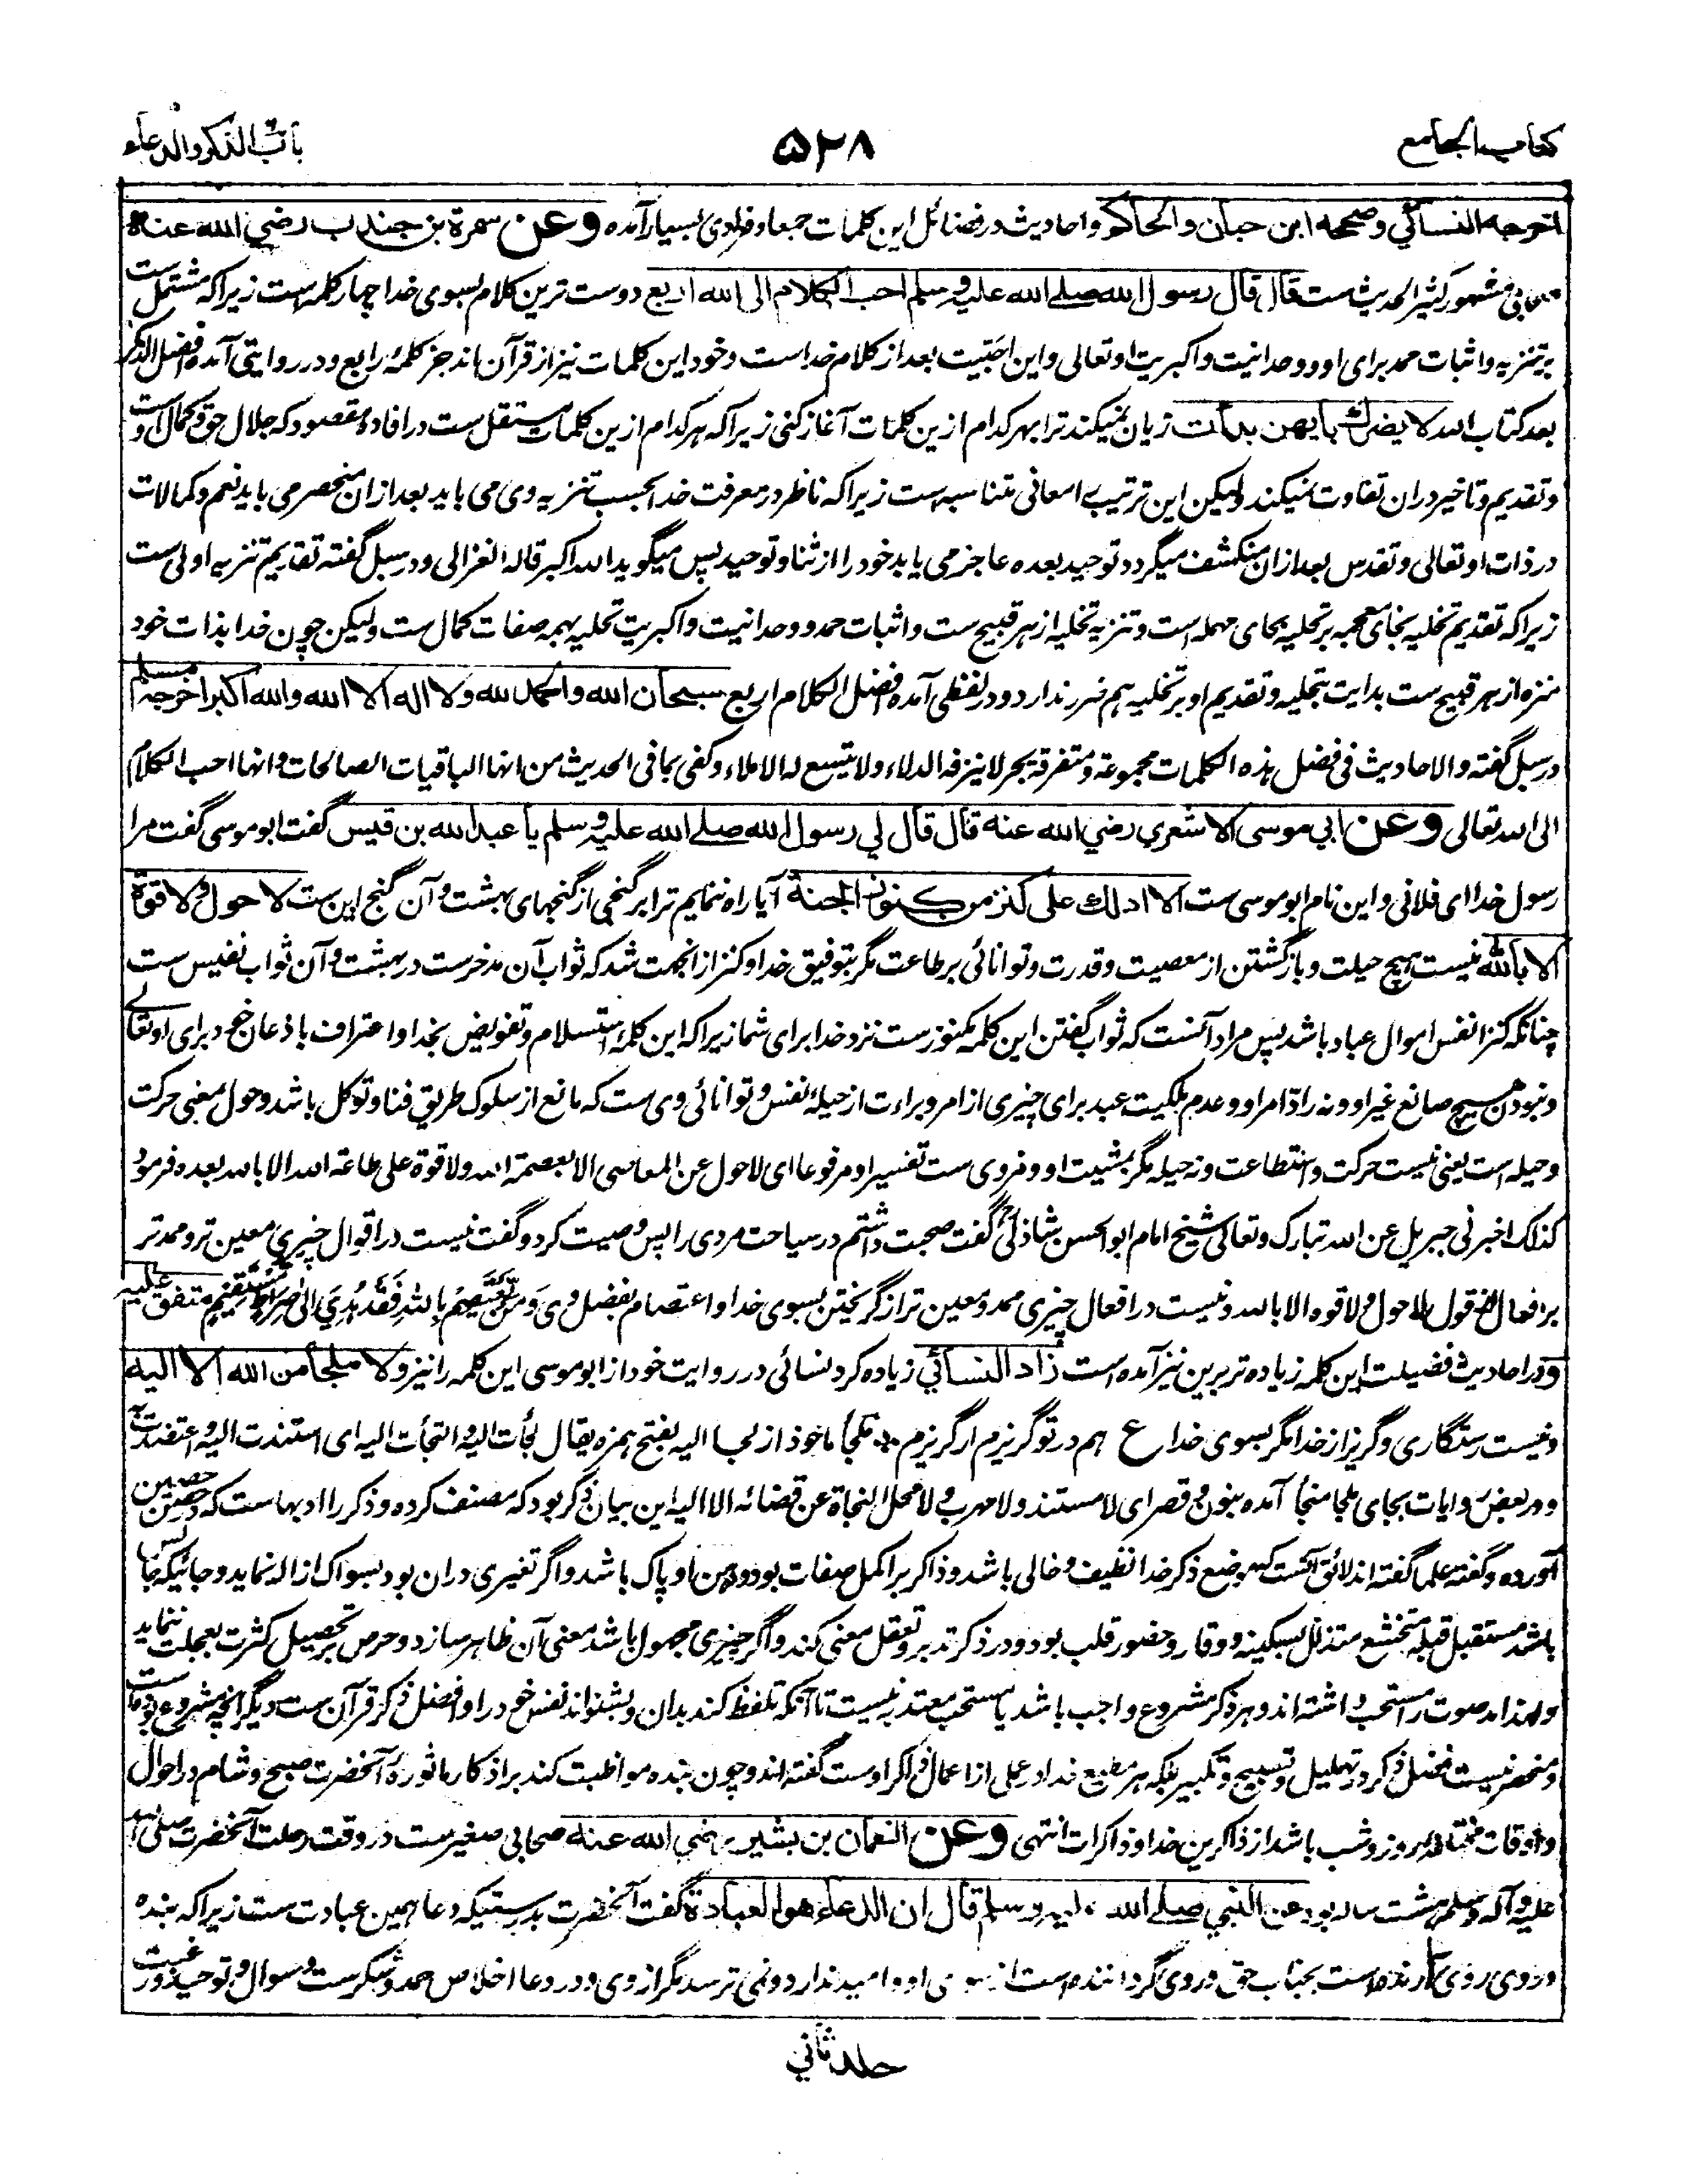 كتاب الجامع
۵۲۸
باب الذكر والدعاء
اخرجه النسائي وصححه ابن حبان والحاكم واحادیث در فضائل این کلمات جمعا وفرادی بسیار آمده وعن سمرة بن جندب رضي الله عنه
صحابی مشهور کثیر الحدیث ست قال قال رسول الله صلے الله علیه وسلم احب الكلام الى الله اربع دوست ترین کلام بسوی خدا چهار کلمه است زیراکه مشتمل ست
بر تنزیه واثبات حمد برای او ووحدانیت واکبریت او تعالی واین احبّیت بعد از کلام خداست وخود این کلمات نیز از قرآن اند جز کلمهٔ رابع ودر روایتی آمده افضل الذکر
بعد کتاب الله لا یضرك بایهن بدأت زیان نمیکند ترا بهر کدام ازین کلمات آغاز کنی زیراکه هر کدام ازین کلمات مستقل ست در افادهٔ مقصود که جلال حق وکمال اوست
وتقدیم وتاخیر دران تفاوت نمیکند ولیکن این ترتیب را معانی متناسبه است زیراکه ناظر در معرفت خدا بحسب تنزیه وی می باید بعد ازان منحصر می یابد نعم وکمالات
در ذات او تعالی وتقدس بعد ازان منکشف میگردد توحید بعده عاجز می یابد خود را از ثنا وتوحید پس میگوید الله اکبر قاله الغزالی ودر سبل گفته تقدیم تنزیه اولی ست
زیراکه تقدیم تخلیه بخای معجمه بر تحلیه بحای مهمله است وتنزیه تخلیه از هر قبیح ست واثبات حمد ووحدانیت واکبریت تحلیه بهمه صفات کمال ست ولیکن چون خدا بذات خود
منزه از هر قبیح ست بدایت بتحلیه وتقدیم او بر تخلیه هم ضرر ندارد ودر لفظی آمده افضل الكلام اربع سبحان الله والحمد لله ولا اله الا الله والله اکبر اخرجه مسلم
در سبل گفته والاحادیث فی فضل هذه الکلمات مجموعة ومتفرقة بحر لا ینزفه الدلاء ولا یتسع له الاملاء وکفی بما فی الحدیث من انها الباقیات الصالحات وانها احب الکلام
الی الله تعالی وعن ابي موسى الاشعري رضي الله عنه قال قال لي رسول الله صلے الله علیه وسلم یا عبد الله بن قیس گفت ابو موسی گفت مرا
رسول خدا ای فلانی واین نام ابو موسی ست الا ادلك علی کنز من کنوز الجنة آیا راه ننمایم ترا بر گنجی از گنجهای بهشت وآن گنج این ست لا حول ولا قوة
الا بالله نیست هیچ حیلت وباز گشتن از معصیت وقدرت وتوانائی بر طاعت مگر بتوفیق خدا وکنز از انجهت شد که ثواب آن مدخرست در بهشت وآن ثواب نفیس ست
چنانکه کنز انفس اموال عباد باشد پس مراد آنست که ثواب گفتن این کلمه مکنوزست نزد خدا برای شما زیراکه این کلمهٔ استسلام وتفویض بخدا واعتراف باذعان خود برای او تعالے
ونبودن هیچ صانع غیر او ونه رادّ امر او وعدم ملکیت عبد برای چیزی از امر وبراءت از حیلهٔ نفس وتوانائی وی ست که مانع از سلوک طریق فنا وتوکل باشد وحول بمعنی حرکت
وحیله است یعنی نیست حرکت واستطاعت ونه حیله مگر بمشیت او ومروی ست تفسیر او مرفوعا ای لا حول عن المعاصی الا بعصمة الله ولا قوة علی طاعة الله الا بالله بعده فرمود
کذلک اخبرنی جبریل عن الله تبارک وتعالی شیخ امام ابو الحسن شاذلی گفت صحبت داشتم در سیاحت مردی را پس وصیت کرد وگفت نیست در اقوال چیزی معین تر وممدتر
بر افعال از قول لا حول ولا قوه الا بالله ونیست در افعال چیزی ممد ومعین تر از گریختن بسوی خدا واعتصام بفضل وی وَمَن یَّعتَصِم بِاللهِ فَقَد هُدِیَ اِلٰی صِراطٍ مُّستَقیمٍ متفق علیه
ودر احادیث فضیلت این کلمه زیاده تر برین نیز آمده است زاد النسائي زیاده کرد نسائی در روایت خود از ابو موسی این کلمه را نیز ولا ملجأ من الله الا الیه
ونیست رستگاری وگریز از خدا مگر بسوی خدا ع هم در تو گریزم ار گریزم ملجأ ماخوذ از لجا الیه بفتح همزه یقال لجأت الیه والتجأت الیه ای استندت الیه واعتضدت
ودر بعض روایات بجای ملجا منجأ آمده بنون وقصر ای لا مستند ولا مهرب ولا محل النجاة عن قضائه الا الیه این بیان ذکر بود که مصنف کرده وذکر را ادبهاست که در حصن حصین
آورده وگفته علما گفته اند لائق آنست که موضع ذکر خدا نظیف وخالی باشد وذاکر بر اکمل صفات بود ودهن او پاک باشد واگر تغیری دران بود بسواک ازاله نماید وجائیکه جالس
باشد مستقبل قبله متخشع متذلل بسکینه ووقار وحضور قلب بود ودر ذکر تدبر وتعقل معنی کند واگر چیزی مجهول باشد معنی آن ظاهر سازد وحرص بر تحصیل کثرت بعجلت ننماید
ولهذا مد صوت را مستحب داشته اند وهر ذکر مشروع واجب باشد یا مستحب معتد به نیست تا آنکه تلفظ کند بدان وبشنواند نفس خود را وافضل ذکر قرآن ست دیگر آنچه مشروع
ومنحصر نیست فضل ذکر در تهلیل وتسبیح وتکبیر بلکه هر مطیع خدا در عملی از اعمال ذاکر اوست گفته اند وچون بنده مواظبت کند بر اذکار ماثورهٔ آنحضرت صبح وشام در احوال
واوقات مختلفه روز وشب باشد از ذاکرین خدا وذاکرات انتهی وعن النعمان بن بشیر رضي الله عنه صحابی صغیرست در وقت رحلت آنحضرت صلی الله
علیه وآله وسلم هشت ساله بود عن النبي صلے الله علیه وسلم قال ان الدعاء هو العبادة گفت آنحضرت بدرستیکه دعا همین عبادت ست زیراکه بنده
در وی روی آرنده است بجناب حق وروی گرداننده است از سوی او وامید ندارد ونمی ترسد مگر از وی ودر دعا اخلاص حمد وشکرست وسوال وتوحید
جلد ثاني